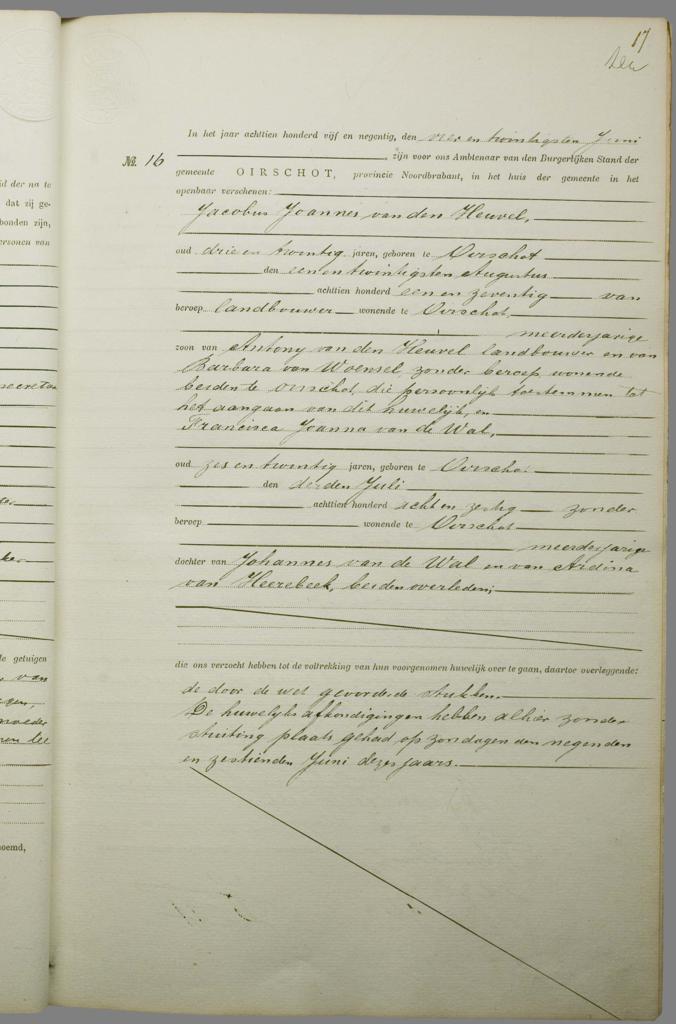 17
In het jaar achttien honderd vijf en negentig, den vier en twintigsten Juni
No. 16
, zijn voor ons Ambtenaar van den Burgerlijken Stand der
gemeente OIRSCHOT, provincie Noordbrabant, in het huis der gemeente in het
openbaar verschenen:
Jacobus Joannes van den Heuvel,
oud drie en twintig jaren, geboren te Oirschot
den een en twintigsten Augustus
achttien honderd een en zeventig van
beroep landbouwer wonende te Oirschot,
meerderjarige
zoon van Antony van den Heuvel landbouwer en van
Barbara van Woensel, zonder beroep wonende
beiden te Oirschot, die persoonlijk toestemmen tot
het aangaan van dit huwelijk, en
Francisca Joanna van de Wal,
oud zes en twintig jaren, geboren te Oirschot
den derden Juli
achttien honderd acht en zestig zonder
beroep wonende te Oirschot
meerderjarige
dochter van Johannes van de Wal en van Ardina
van Heerebeek, beiden overleden;
die ons verzocht hebben tot de voltrekking van hun voorgenomen huwelijk over te gaan, daartoe overleggende:
de door de wet gevorderde stukken.
De huwelijks afkondigingen hebben alhier zonder
stuiting plaats gehad op zondagen den negenden
en zestienden Juni dezes jaars.
id der na te
dat zij ge-
bonden zijn,
ersonen van
secreta
de getuigen
van
moeder
oemd,